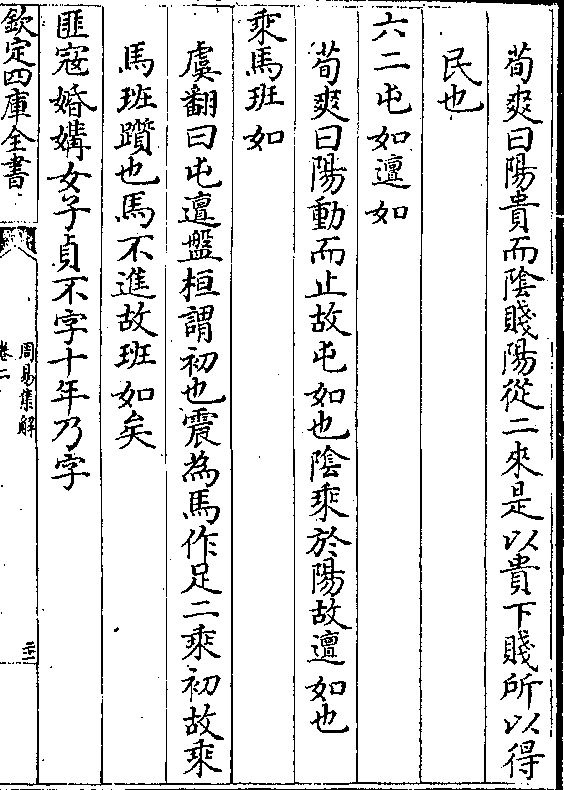 荀爽曰陽貴而陰賤陽從二來是以貴下賤所以得
民也
六二屯如邅如
荀爽曰陽動而止故屯如也陰乘於陽故邅如也
乘馬班如
虞翻曰屯邅盤桓謂初也震為馬作足二乘初故乘
馬班躓也馬不進故班如矣
匪寇婚媾女子貞不字十年乃字
欽定四庫全書
周易集解
卷二